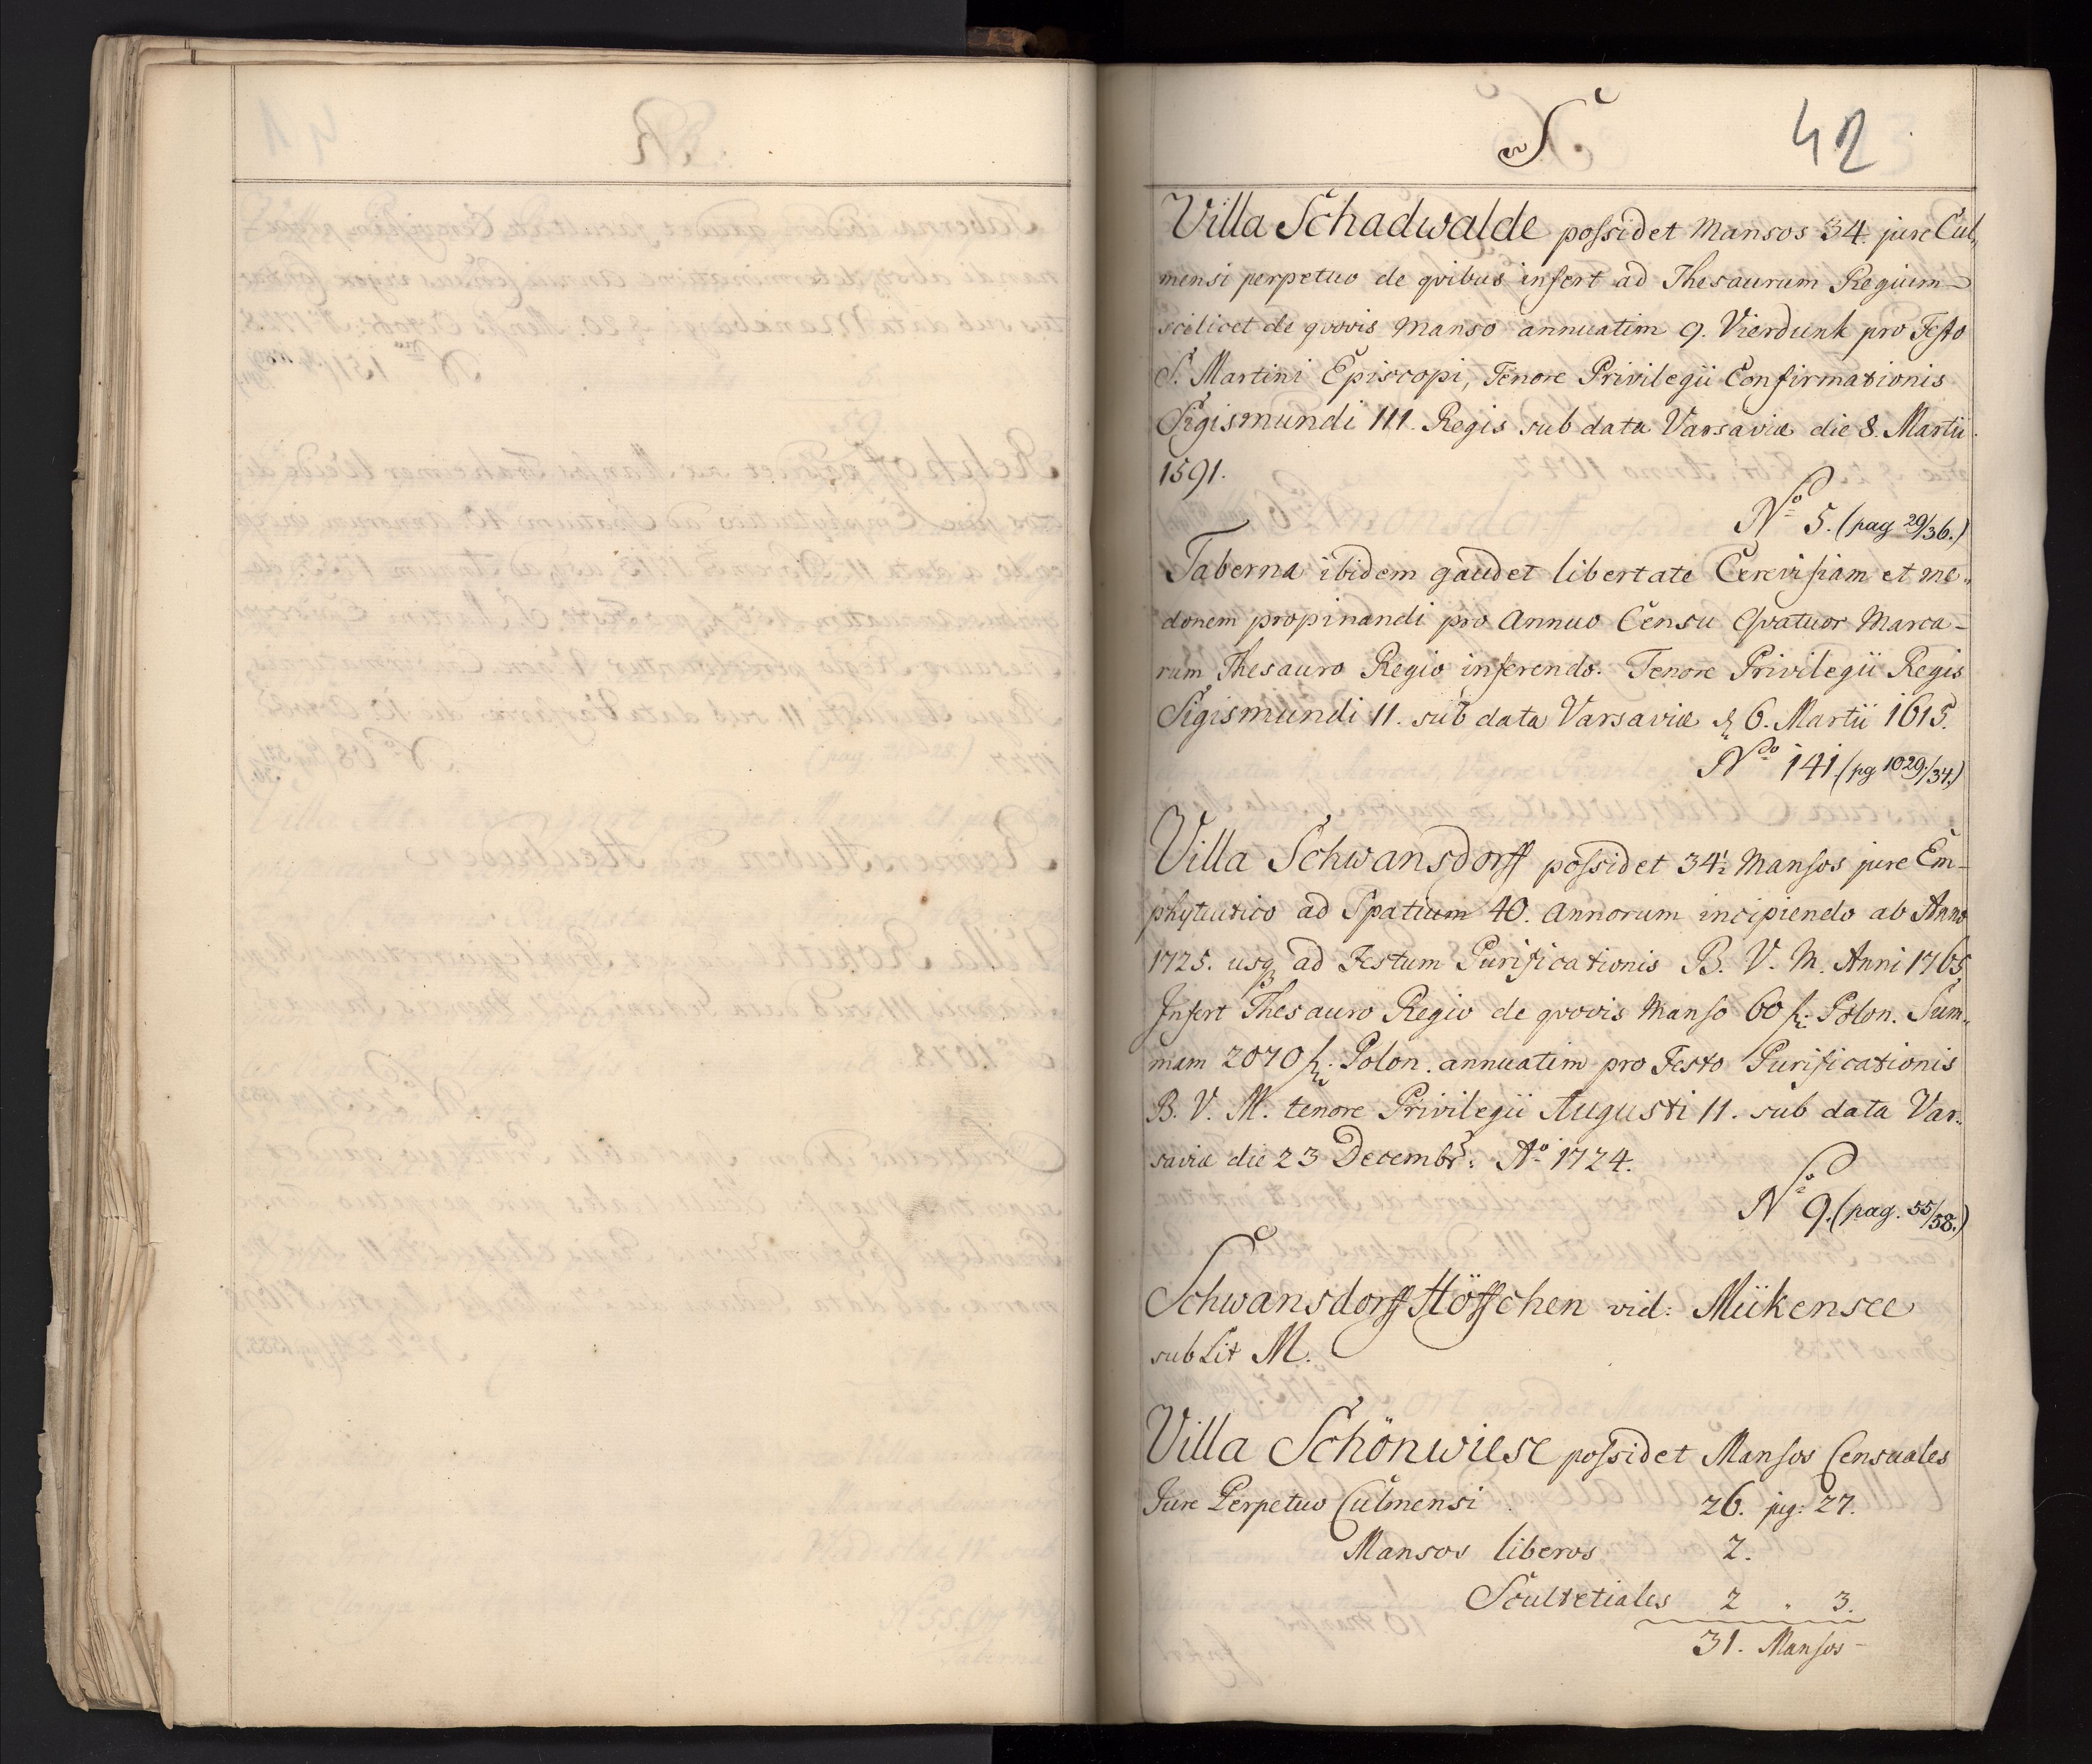 R
S.
42
Villa Schadwalde possidet Mansos 34. jure Cul„
mensi perpetuo de qvibus infert ad Thesaurum Regium
scilicet de qvovis Manso annuatim 9. Vierdunk pro Festo
S. Martini Episcopi, Tenore Privilegii Confirmationis
Sigismundi III. Regis sub data Varsaviæ die 8. Martii
1591.
No 5. (pag 29/36.)
Taberna ibidem gaudet libertate Cerevisiam et me„
donem propinandi pro Annuo Censu Qvatuor Marca-
rum Thesauro Regio inferendo. Tenore Privilegii Regis
Sigismundi II. sub data Varsaviæ d. 6. Martii 1615.
No 141 (pg 1029/34.)
Villa Schwansdorff possidet 34½ Mansos jure Em-
phyteutico ad Spatium 40. Annorum incipiendo ab Anno
1725. usq ad Festum Purificationis B. V. M. Anni 1765
Infert Thesauro Regio de qvovis Manso 60 fl. Polon. Sum„
mam 2070 fl. Polon. annuatim pro Festo Purificationis
B. V. M. tenore Privilegii Augusti II. sub data Var„
saviæ die 23 Decembr: Ao 1724.
No 9. (pag. 55/58.)
Schwansdorff Höffchen vid: Mükensee
sub Lit M.
Villa Schönwiese possidet Mansos Censuales
Jure Perpetuo Culmensi 26. jug: 27.
Mansos liberos 2.
Scultetiales 2 " 3.
31. Mansos